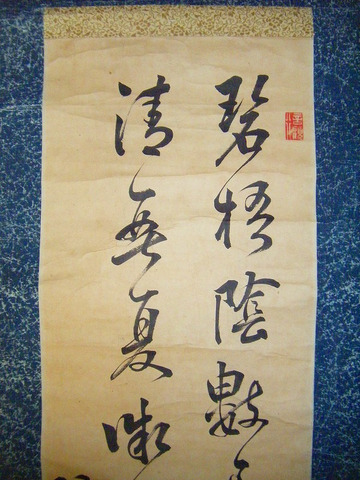 碧梧陰數
清無夏